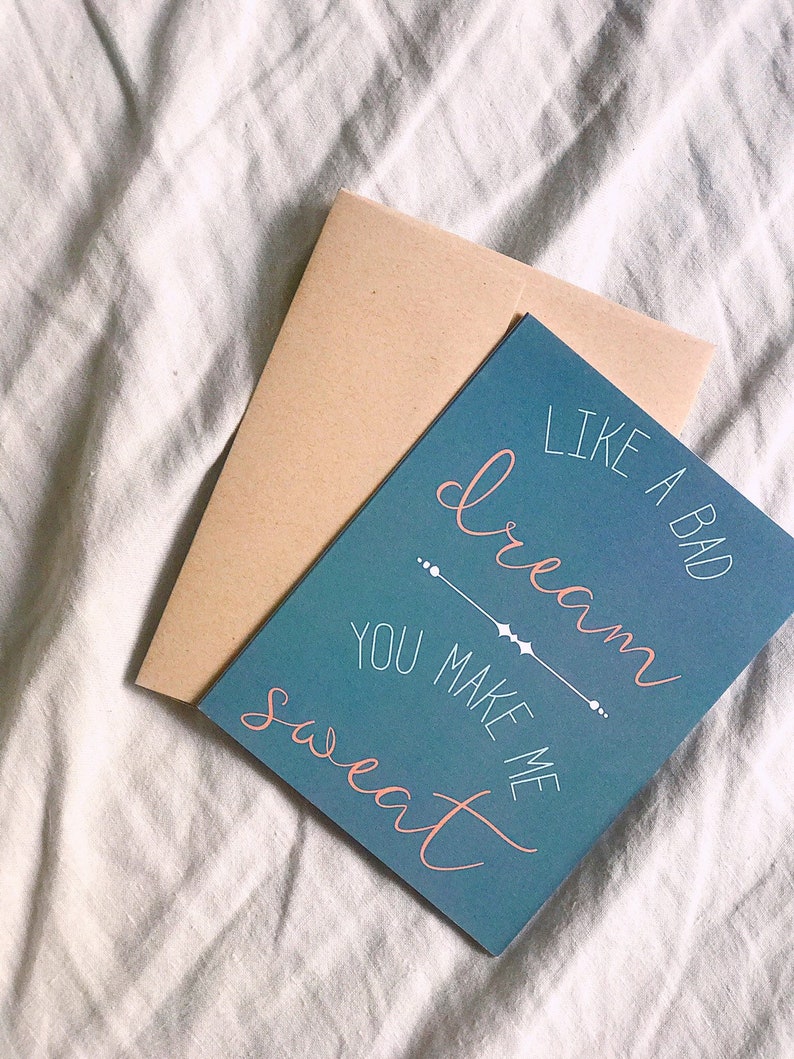 LIKE A BAD
dream
YOU MAKE ME
sweat